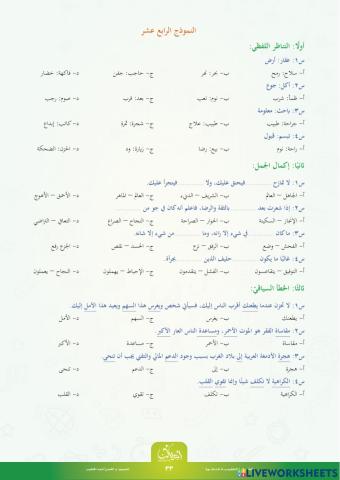 النموذج الرابع عشر
أولًا: التناظر اللفظي:
س١: عقار: أرض
أ- سلاح: رمح ب- بحر: نهر ج- حاجب: جفن د- فاكهة: خضار
س٢: أكل: جوع
أ- ظمأ: شرب ب- نوم: تعب ج- بعد: قرب د- صوم: رجب
س٣: باحث: معلومة
أ- جراحة: طبيب ب- طبيب: علاج ج- شجرة: ثمرة د- كاتب: إبداع
س٤: تبسم: قبول
أ- راحة: نوم ب- بيع: رضا ج- زيارة: ود د- الحزن: الضحكة
ثانيًا: إكمال الجمل:
س١: لا تمازح .......... فيحنق عليك، ولا .......... فيتجرأ عليك.
أ- الجاهل – العالم ب- الشريف – الدنيء ج- العالم – الماهر د- الأحمق – الأهوج
س٢: إذا شعرت بعد .......... بالثقة والرضا، فاعلم أنه كان في جو من ..........
أ- الإنجاز – السكينة ب- الحوار – الصراحة ج- النجاح – الصراع د- التعافي – التراضي
س٣: ما كان .......... في شيء إلا زانه، وما .......... من شيء إلا شانه
أ- الفحش – وضع ب- الرفق – نزع ج- الحسد – نقص د- الجزع رفع
س٤: غالبًا ما يكون .......... حليف الذين .......... بجرأة.
أ- التوفيق – يتقاعسون ب- الفشل – يتقدمون ج- الإحباط – يهملون د- النجاح – يعملون
ثالثًا: الخطأ السياقي:
س١: لا تحزن عندما يطعنك أقرب الناس إليك، فسيأتي شخص ويغرس هذا السهم ويعيد هذا الأمل إليك.
أ- يطعنك ب- يغرس ج- السهم د- الأمل
س٢: مقاساة الفقر هو الموت الأحمر، ومساعدة الناس العار الأكبر.
أ- مقاساة ب- الأحمر ج- مساعدة د- الأكبر
س٣: هجرة الأدمغة العربية إلى بلاد الغرب بسبب وجود الدعم المالي والتقني يجب أن تنحى.
أ- هجرة ب- إلى ج- الدعم د- تنحى
س٤: الكراهية لا تكلف شيئًا وإنما تقوي القلب.
أ- الكراهية ب- تكلف ج- تقوي د- القلب
٣٣
LIVEWORKSHEETS